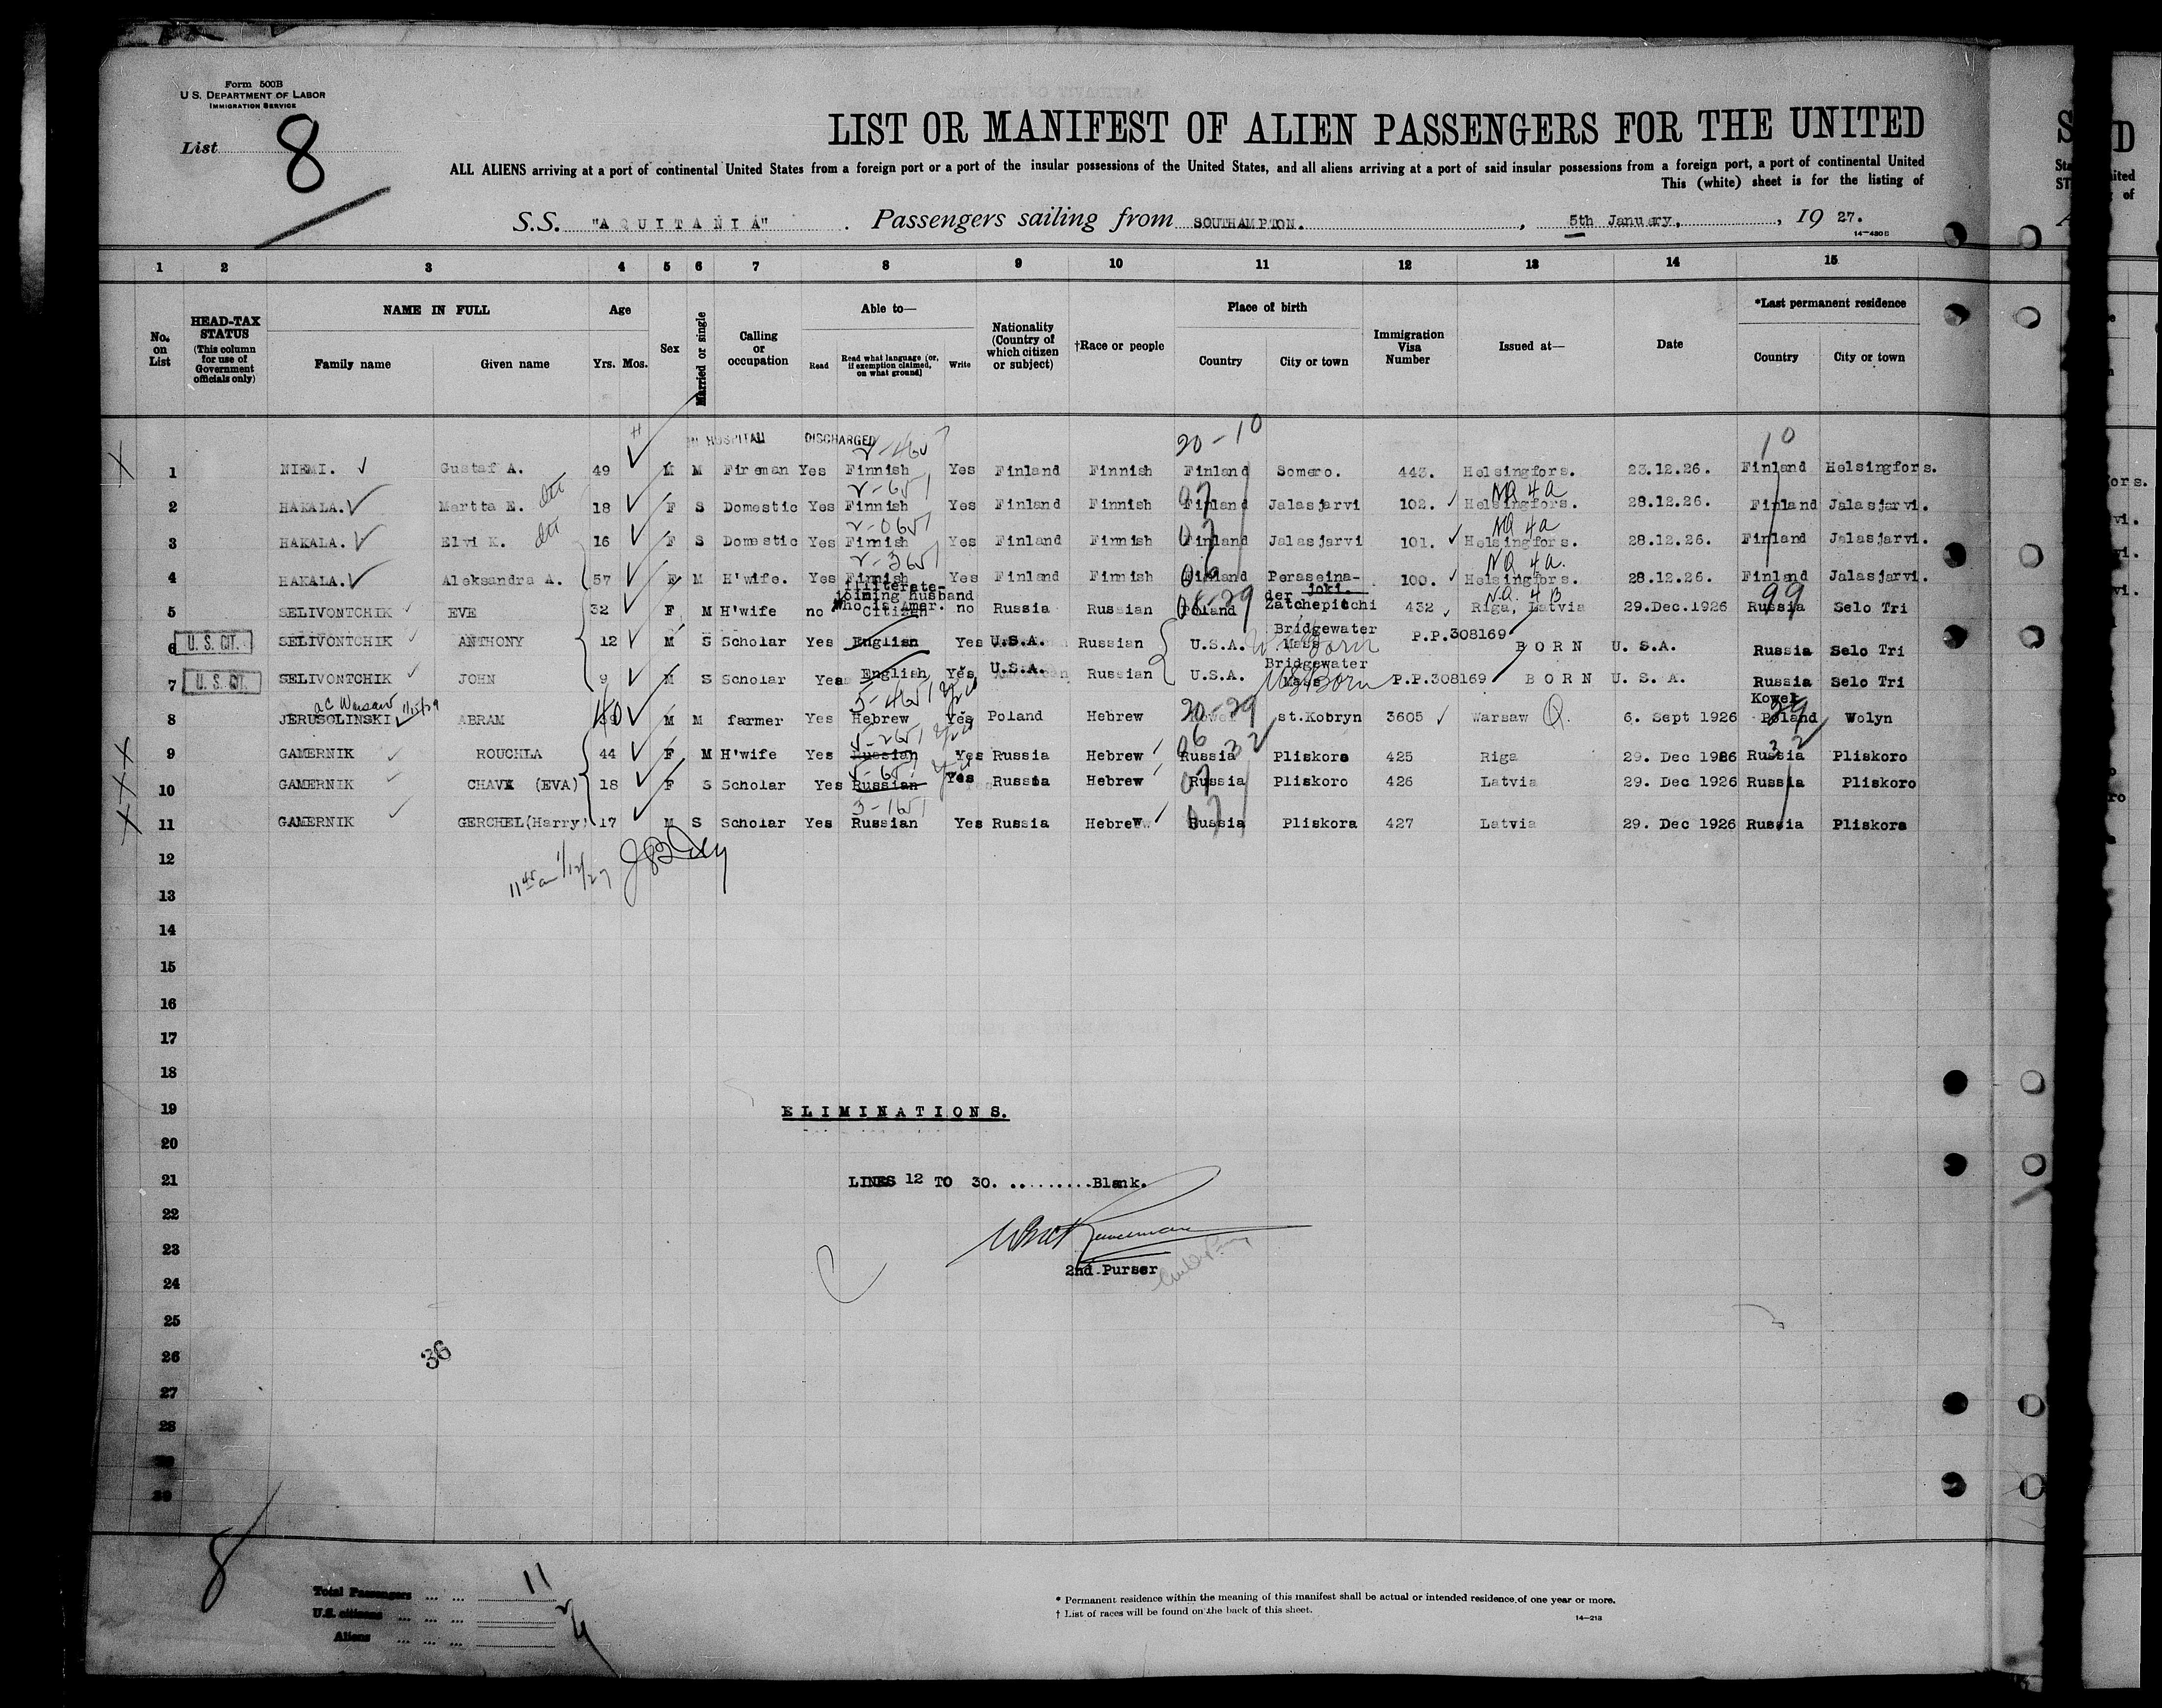 Form 500B
U. S. DEPARTMENT OF LABOR
IMMIGRATION SERVICE
List 8
LIST OR MANIFEST OF ALIEN PASSENGERS FOR THE UNITED
ALL ALIENS arriving at a port of continental United States from a foreign port or a port of the insular possessions of the United States, and all aliens arriving at a port of said insular possessions from a foreign port, a port of continental United
This (white) sheet is for the listing of
S.S. "AQUITANIA". Passengers sailing from SOUTHAMPTON., 5th January,, 19 27.
14-430B
1 2 3 4 5 6 7 8 9 10 11 12 13 14 15
No. on List
HEAD-TAX STATUS (This column for use of Government officials only)
NAME IN FULL
Family name Given name
Age
Yrs. Mos.
Sex
Married or single
Calling or occupation
Able to—
Read Read what language (or, if exemption claimed, on what ground) Write
Nationality (Country of which citizen or subject)
†Race or people
Place of birth
Country City or town
Immigration Visa Number
Issued at—
Date
*Last permanent residence
Country City or town
IN HOSPITAL DISCHARGED 20-10 10
X 1 NIEMI. Gustaf A. 49 M M Fireman Yes Finnish Yes Finland Finnish Finland Somero. 443. Helsingfors. 23.12.26. Finland Helsingfors.
NQ 4a
2 HAKALA. Martta E. 18 F S Domestic Yes Finnish Yes Finland Finnish Finland Jalasjarvi 102. Helsingfors. 28.12.26. Finland Jalasjarvi.
NQ 4a
3 HAKALA. Elvi K. 16 F S Domestic Yes Finnish Yes Finland Finnish Finland Jalasjarvi 101. Helsingfors. 28.12.26. Finland Jalasjarvi.
NQ 4a.
4 HAKALA. Aleksandra A. 57 F M H'wife. Yes Finnish Yes Finland Finnish Finland Peraseina-joki. 100. Helsingfors. 28.12.26. Finland Jalasjarvi.
Illiterate-
joining husband
who is Amer.
N.Q. 4B
5 SELIVONTCHIK EVE 32 F M H'wife no Citizen no Russia Russian Poland Zatchepitchi 432 Riga, Latvia 29.Dec.1926 Russia Selo Tri
6 U. S. CIT. SELIVONTCHIK ANTHONY 12 M S Scholar Yes English Yes U.S.A. Russian U.S.A. Bridgewater Mass P.P.308169 BORN U.S.A. Russia Selo Tri
7 U. S. CIT. SELIVONTCHIK JOHN 9 M S Scholar Yes English Yes U.S.A. Russian U.S.A. Bridgewater Mass US Born P.P.308169 BORN U.S.A. Russia Selo Tri
Kowel
8 JERUSOLINSKI ABRAM 40 M M farmer Yes Hebrew Yes Poland Hebrew 20-29 st.Kobryn 3605 Warsaw Q. 6. Sept 1926 Poland Wolyn
X 9 GAMERNIK ROUCHLA 44 F M H'wife Yes Russian Yes Russia Hebrew Russia Pliskoro 425 Riga 29. Dec 1926 Russia Pliskoro
X 10 GAMERNIK CHAVA (EVA) 18 F S Scholar Yes Russian Yes Russia Hebrew Russia Pliskoro 426 Latvia 29. Dec 1926 Russia Pliskoro
X 11 GAMERNIK GERCHEL(Harry) 17 M S Scholar Yes Russian Yes Russia Hebrew Russia Pliskora 427 Latvia 29. Dec 1926 Russia Pliskora
12
13
14
15
16
17
18
19 ELIMINATIONS.
20
21 LINES 12 TO 30. .........Blank.
22
23
2nd Purser
24
25
26 36
27
28
29
30
8
Total Passengers ... ... 11
U.S. citizens ... ... ... 2
Aliens ... ... ... 9
* Permanent residence within the meaning of this manifest shall be actual or intended residence of one year or more.
† List of races will be found on the back of this sheet.
14-213